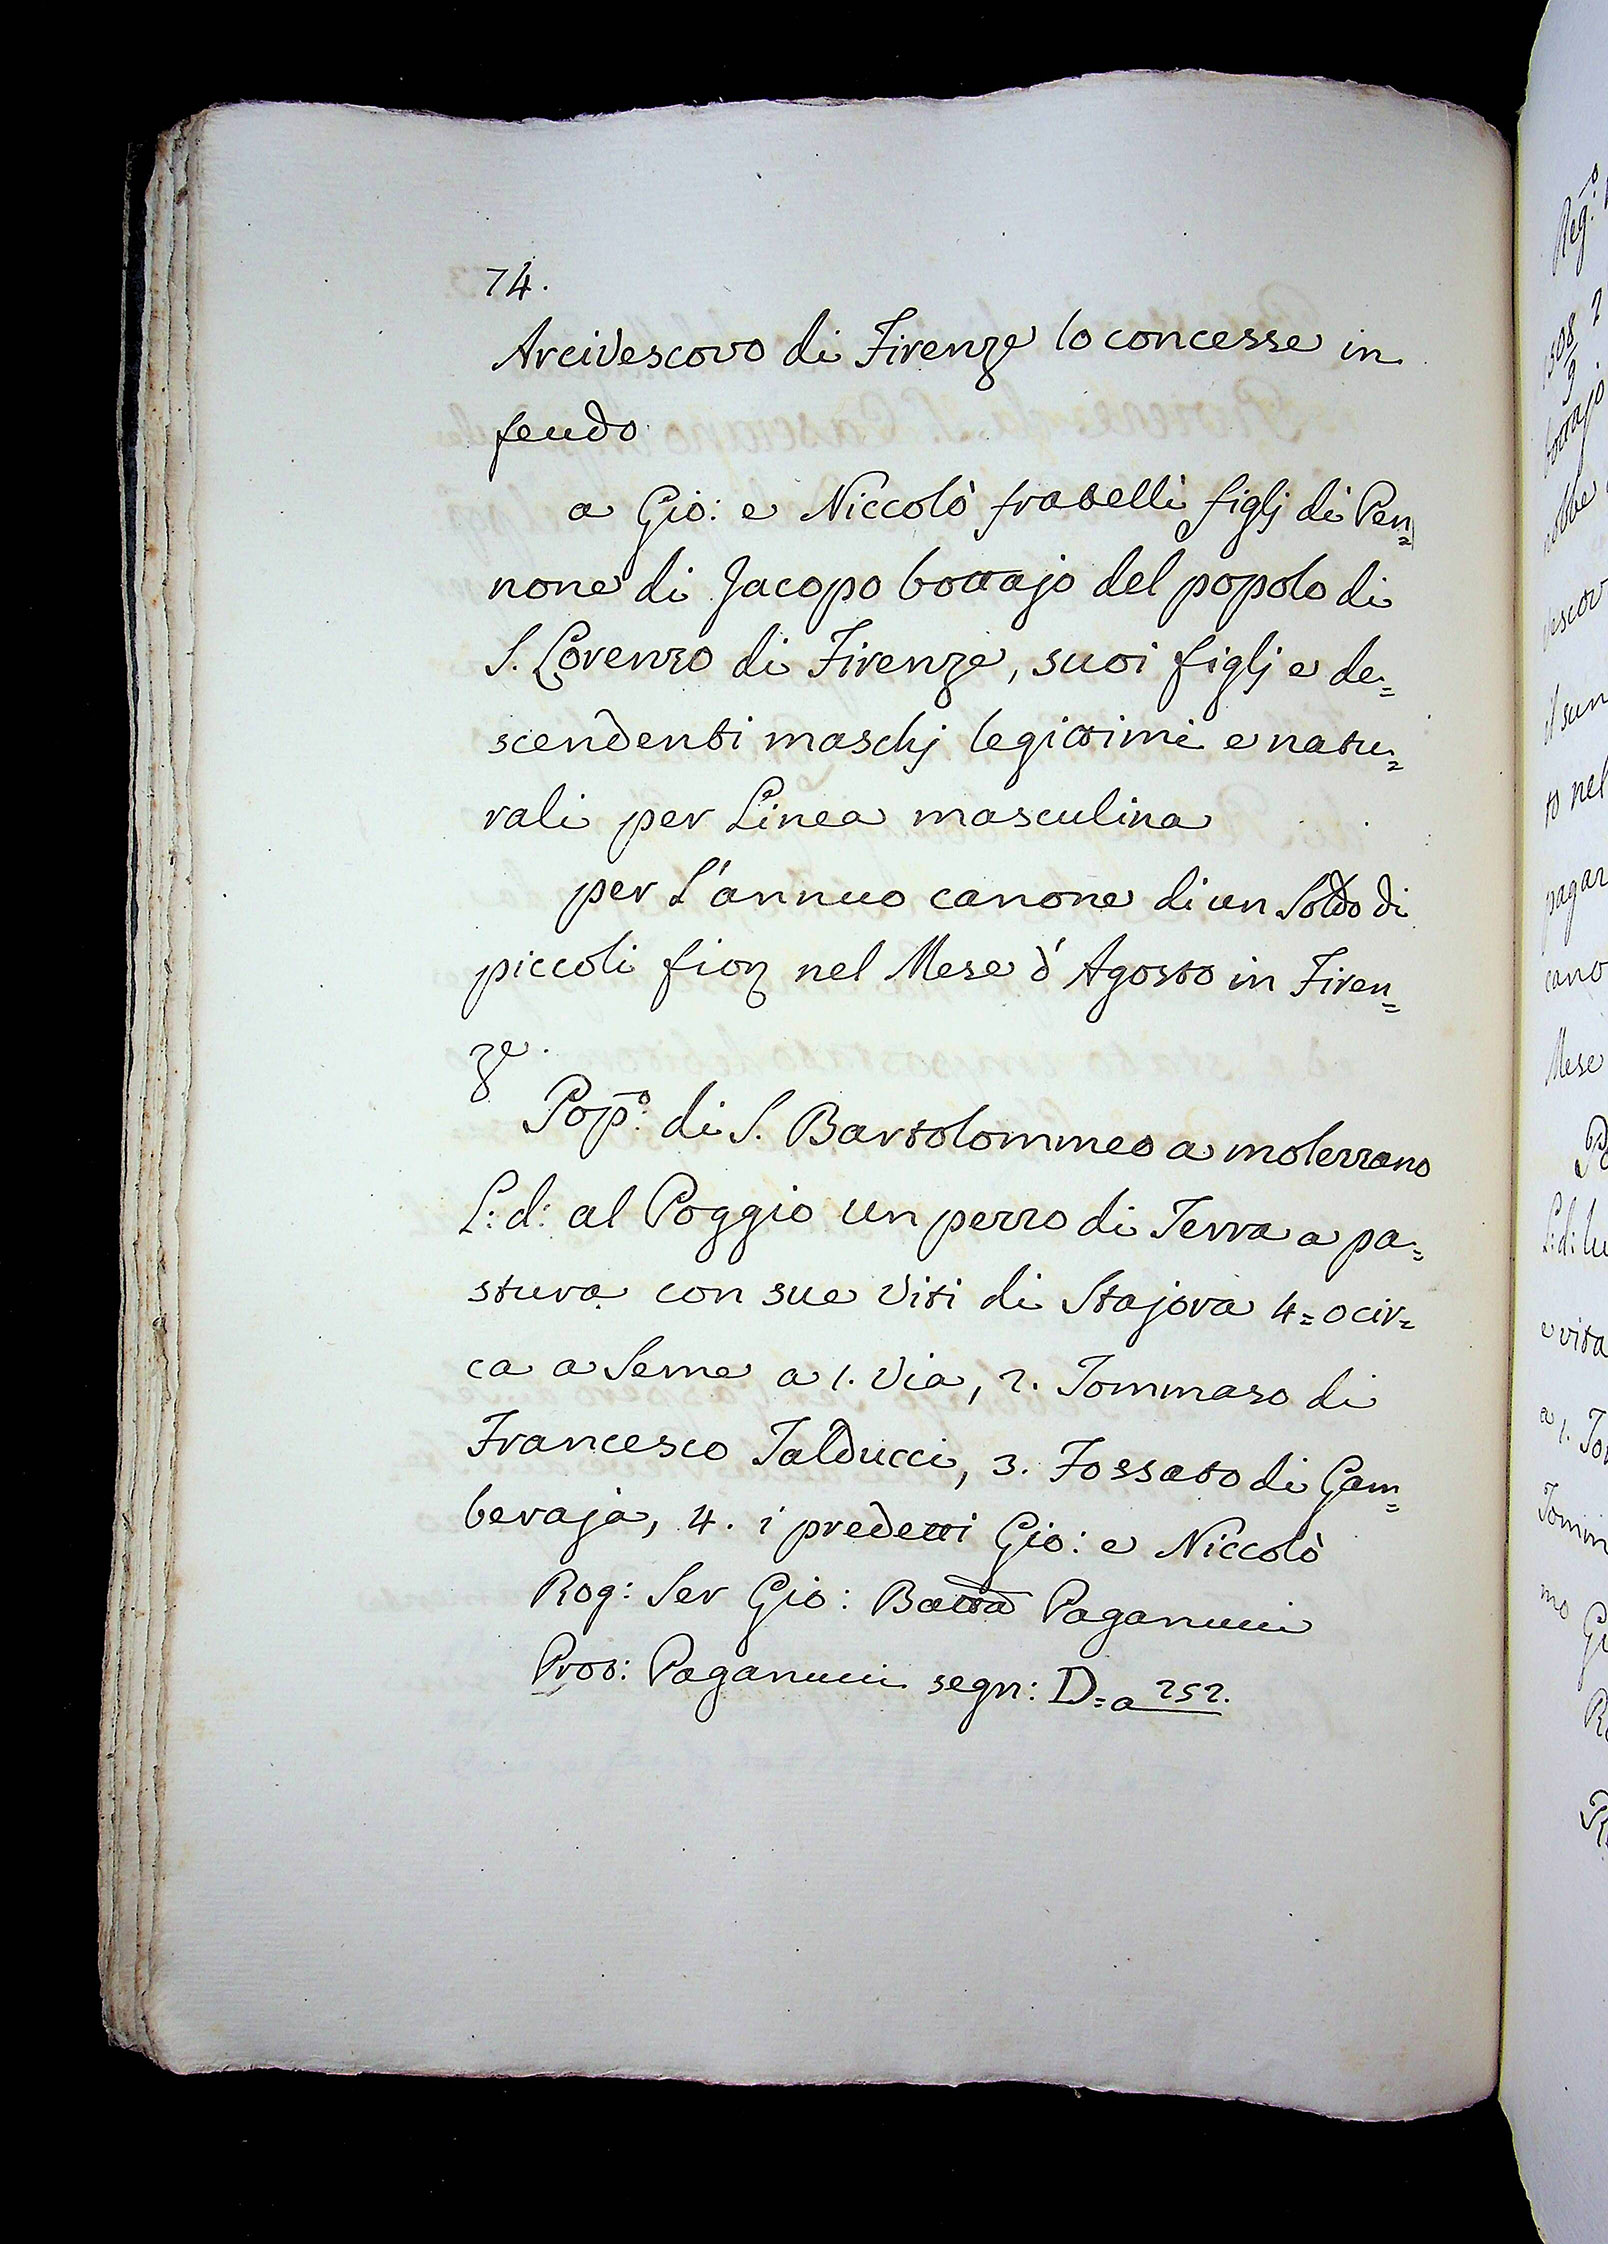 74.
Arcivescovo di Firenze lo concesse in
feudo
a Gio: e Niccolò fratelli figlj di Pen=
none di Jacopo bottajo del popolo di
S. Lorenzo di Firenze, suoi figlj e de=
scendenti maschj legittimi e natu=
rali per Linea masculina
per L'annuo canone di un Soldo di
piccoli fior nel Mese d'Agosto in Firen=
ze.
Pop.o di S. Bartolommeo a molezzano
L: d: al Poggio un pezzo di Terra a pa=
stura con sue Viti di Stajora 4 = o cir=
ca a Seme a 1. Via, 2. Tommaso di
Francesco Talducci, 3. Fossato di Gam=
beraja, 4. i predetti Gio: e Niccolò
Rog: Ser Gio: Batta Paganucci
Prot: Paganucci segn: D = a 252.
Reg.o
1508
9
bottajo
nobbe
vescov
il sun
to nel
pagar
cano
Mese
Po
L: d: lu
e vita
a 1. To
Tomm
mo
Gi
R